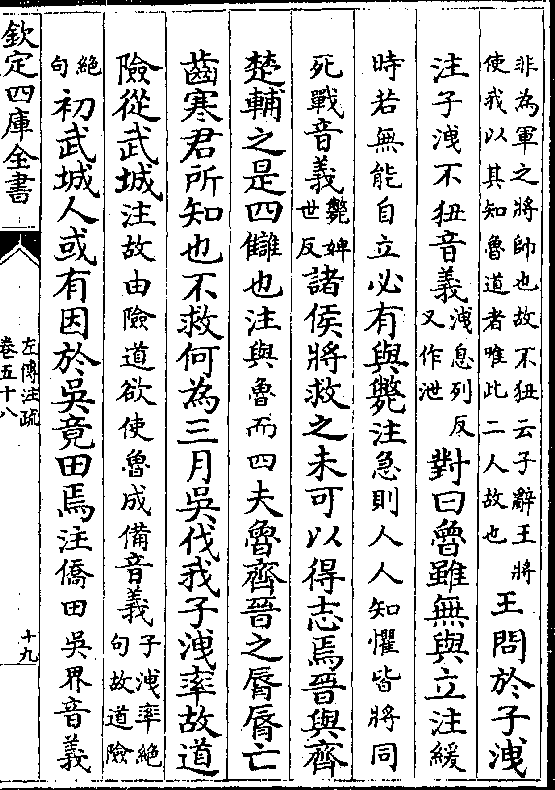 非為軍之將帥也故不狃云子辭王將
使我以其知魯道者唯此二人故也
王問於子洩
注子洩不狃音義
洩息列反
又作泄
對曰魯雖無與立注緩
時若無能自立必有與斃注急則人人知懼皆將同
死戰音義
斃婢
世反
諸侯將救之未可以得志焉晉與齊
楚輔之是四讎也注與魯而四夫魯齊晉之脣脣亡
齒寒君所知也不救何為三月吳伐我子洩率故道
險從武城注故由險道欲使魯成備音義
子洩率絕
句故道險
絕
句
初武城人或有因於吳竟田焉注僑田吳界音義
欽定四庫全書
左傳注疏
卷五十八
十九